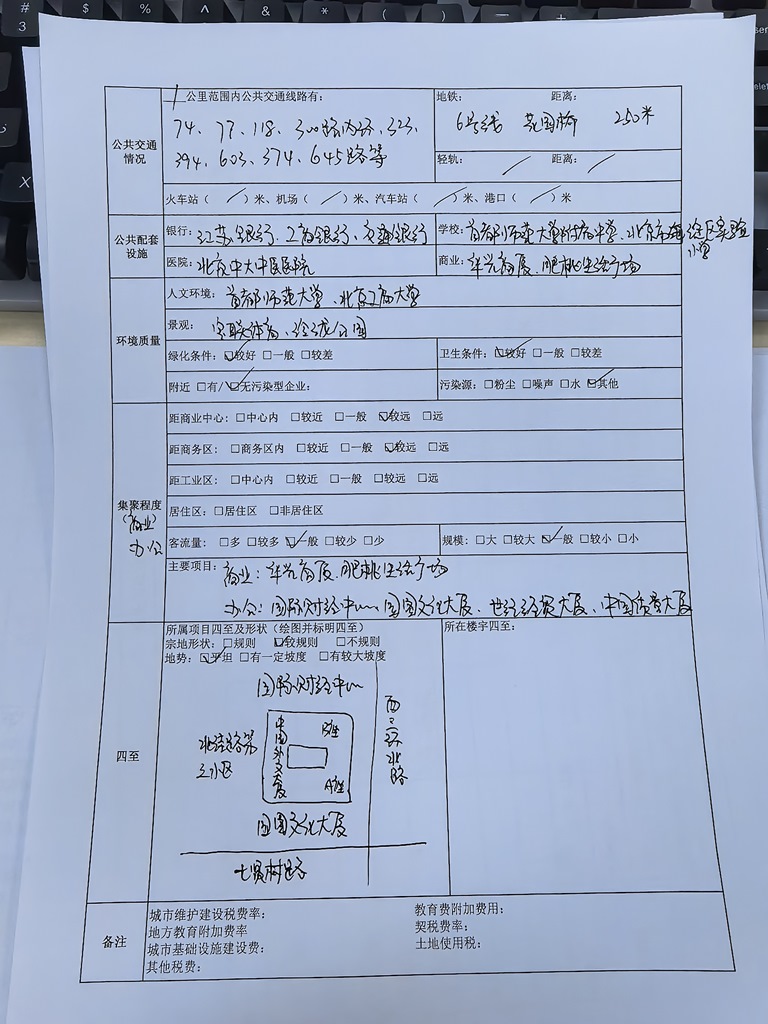 1公里范围内公共交通线路有:
地铁: 距离:
74、77、118、300路内环、323、
394、603、374、645路等
6号线 花园桥 250米
公共交通情况
轻轨: / 距离: /
火车站( / )米、机场( / )米、汽车站( / )米、港口( / )米
公共配套设施
银行: 江苏银行、工商银行、交通银行
学校: 首都师范大学附属中学、北京市海淀区实验小学
医院: 北京中大中医医院
商业: 华光商厦、
环境质量
人文环境: 首都师范大学、北京工商大学
景观:
绿化条件: ☑较好 □一般 □较差
卫生条件: ☑较好 □一般 □较差
附近 □有/☑无污染型企业:
污染源: □粉尘 □噪声 □水 ☑其他
集聚程度
(商业)
办公
距商业中心: □中心内 □较近 □一般 ☑较远 □远
距商务区: □商务区内 □较近 □一般 ☑较远 □远
距工业区: □中心内 □较近 □一般 □较远 □远
居住区: □居住区 □非居住区
客流量: □多 □较多 ☑一般 □较少 □少
规模: □大 □较大 ☑一般 □较小 □小
主要项目: 商业: 华光商厦、
办公: 国际财经中心、国图文化大厦、世纪经贸大厦、中国质贸大厦
四至
所属项目四至及形状(绘图并标明四至)
宗地形状: □规则 ☑较规则 □不规则
地势: ☑平坦 □有一定坡度 □有较大坡度
所在楼宇四至:
国际财经中心
西三环北路
北洼路第三小区
中国外文大厦
B座
A座
国图文化大厦
七贤村路
备注
城市维护建设税费率:
教育费附加费用:
地方教育附加费率
契税费率:
城市基础设施建设费:
土地使用税:
其他税费: